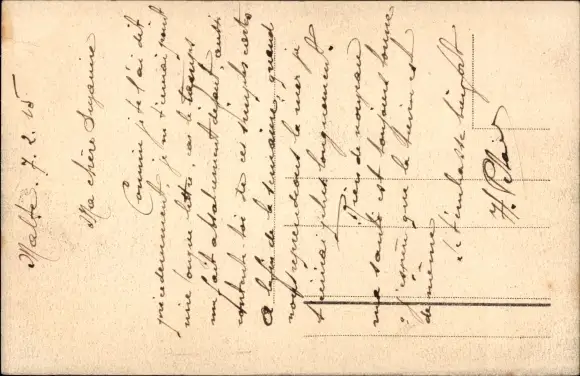 Malte. 7. 2. 15
Ma chère Suzanne
Comme je te l'ai dit
précédemment je ne t'écrirai pas
une longue lettre, car le temps
me fait absolument défaut aussi
contente toi de ces simples mots
A la fin de la semaine, quand
nous reprendrons la mer je
t'écrirai plus longuement.
Rien de nouveau
ma santé est toujours bonne
j'espère que la tienne est
de même
Je t'embrasse bien fort